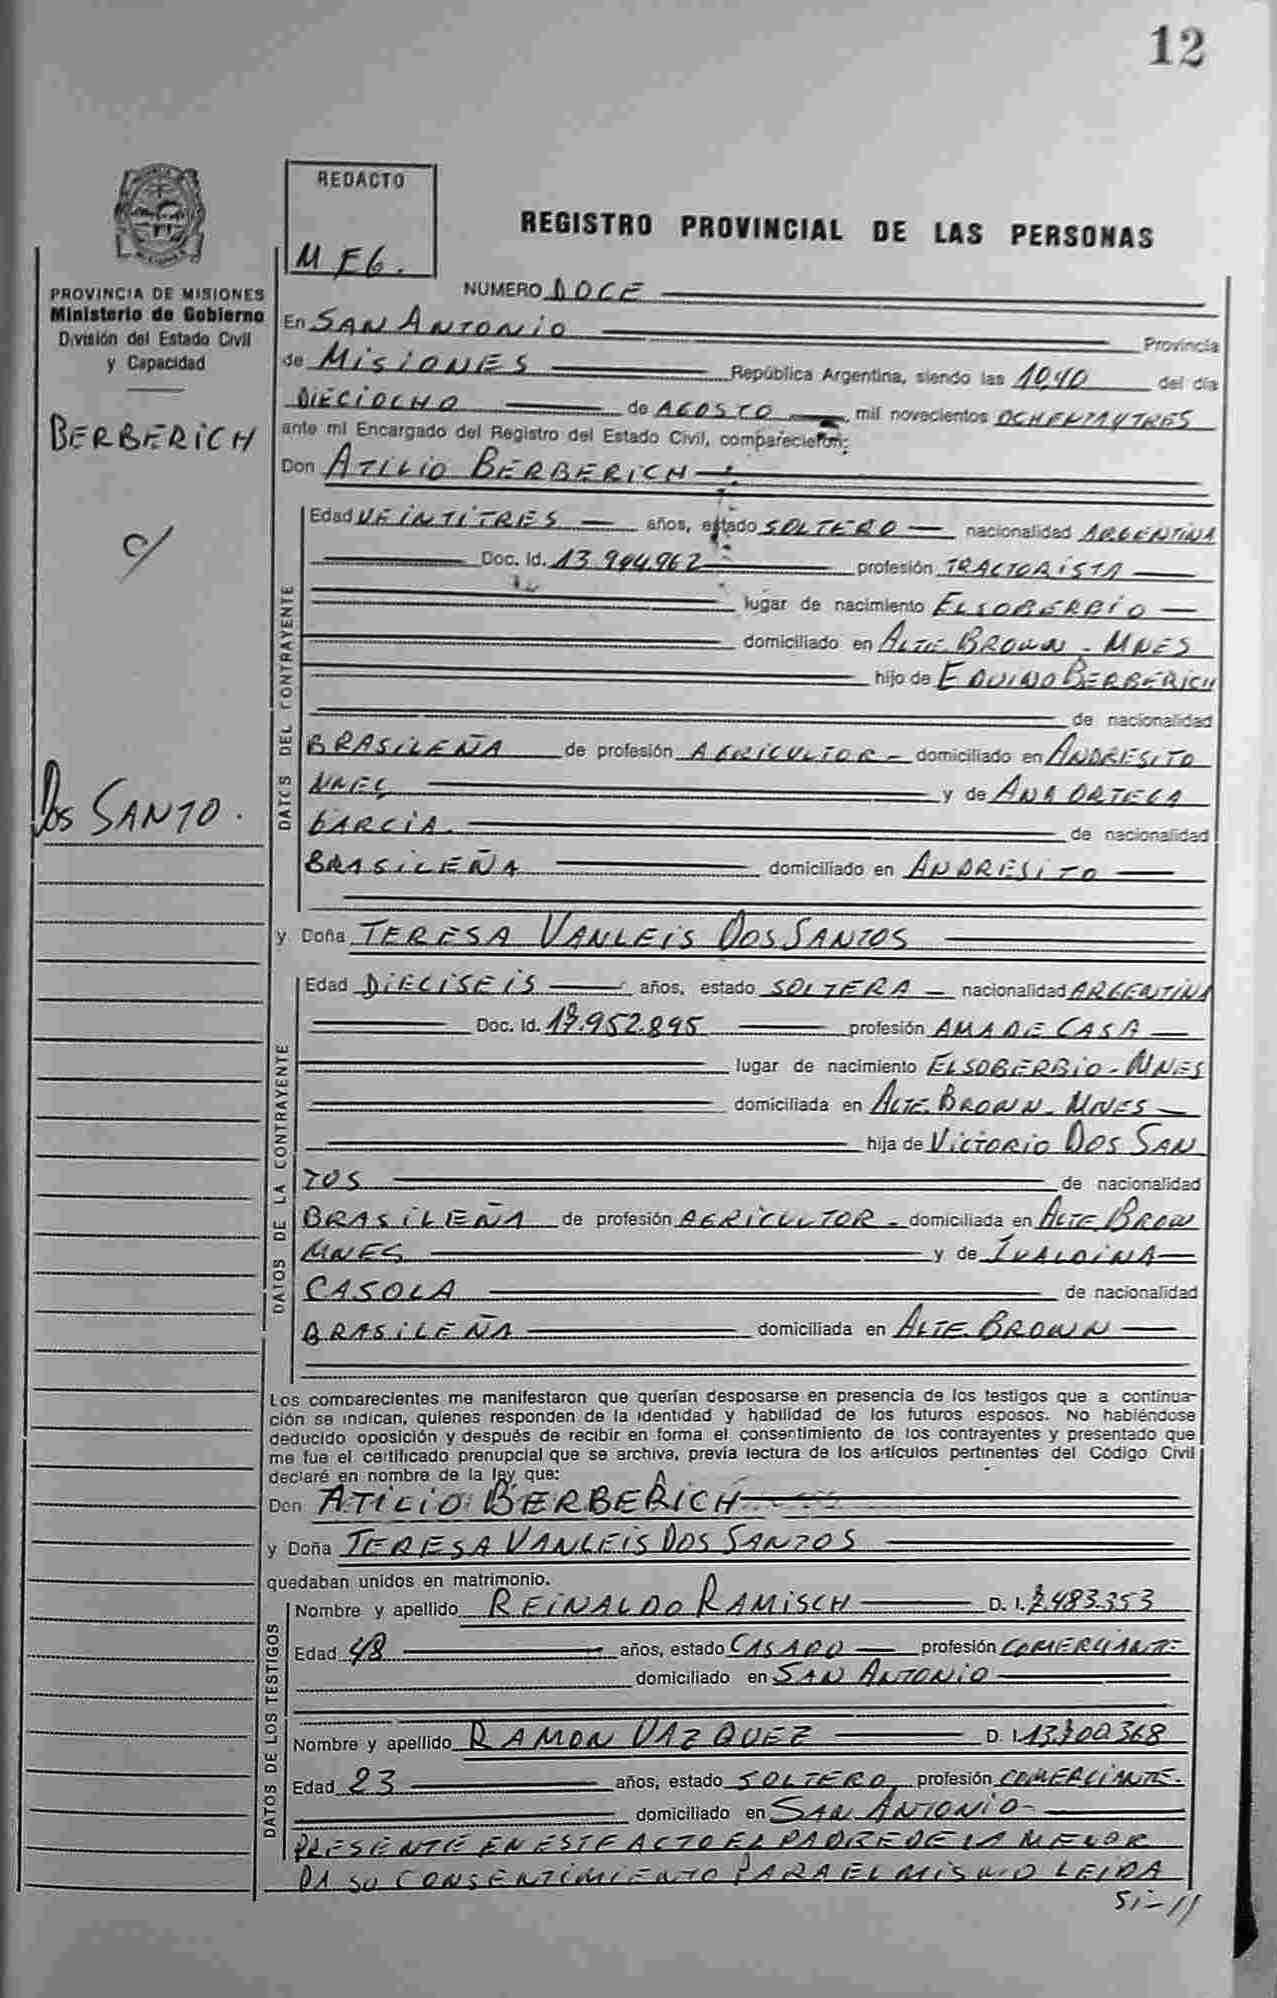 12
REDACTO
M E G.
REGISTRO PROVINCIAL DE LAS PERSONAS
PROVINCIA DE MISIONES
Ministerio de Gobierno
División del Estado Civil
y Capacidad
BERBERICH
c/
Dos SANTO.
NUMERO DOCE
En SAN ANTONIO Provincia
de MISIONES República Argentina, siendo las 1040 del día
DIECIOCHO de AGOSTO mil novecientos OCHENTAYTRES
ante mí Encargado del Registro del Estado Civil, comparecieron:
Don ATILIO BERBERICH
DATOS DEL CONTRAYENTE
Edad VEINTITRES años, estado SOLTERO nacionalidad ARGENTINA
Doc. Id. 13.904.962 profesión TRACTORISTA
lugar de nacimiento EL SOBERBIO
domiciliado en ALTE BROWN - MNES
hijo de EDUINO BERBERICH
de nacionalidad
BRASILEÑA de profesión AGRICULTOR - domiciliado en ANDRESITO
MNES y de ANA ORTEGA
GARCIA. de nacionalidad
BRASILEÑA domiciliado en ANDRESITO
y Doña TERESA VANLEIS DOS SANTOS
DATOS DE LA CONTRAYENTE
Edad DIECISEIS años, estado SOLTERA nacionalidad ARGENTINA
Doc. Id. 18.952.895 profesión AMA DE CASA
lugar de nacimiento EL SOBERBIO - MNES
domiciliada en ALTE. BROWN - MNES
hija de VICTORIO DOS SAN
TOS de nacionalidad
BRASILEÑA de profesión AGRICULTOR - domiciliada en ALTE BROW
MNES y de IVALDINA
CASOLA de nacionalidad
BRASILEÑA domiciliada en ALTE. BROWN
Los comparecientes me manifestaron que querían desposarse en presencia de los testigos que a continua-
ción se indican, quienes responden de la identidad y habilidad de los futuros esposos. No habiéndose
deducido oposición y después de recibir en forma el consentimiento de los contrayentes y presentado que
me fue el certificado prenupcial que se archiva, previa lectura de los artículos pertinentes del Código Civil
declaré en nombre de la ley que:
Don ATILIO BERBERICH
y Doña TERESA VANLEIS DOS SANTOS
quedaban unidos en matrimonio.
DATOS DE LOS TESTIGOS
Nombre y apellido REINALDO RAMISCH D. I. 7.483.353
Edad 48 años, estado CASADO profesión COMERCIANTE
domiciliado en SAN ANTONIO
Nombre y apellido RAMON VAZQUEZ D. I. 13.300.368
Edad 23 años, estado SOLTERO, profesión COMERCIANTE.
domiciliado en SAN ANTONIO-
PRESENTE EN ESTE ACTO EL PADRE DE LA MENOR
DA SU CONSENTIMIENTO PARA EL MISMO LEIDA